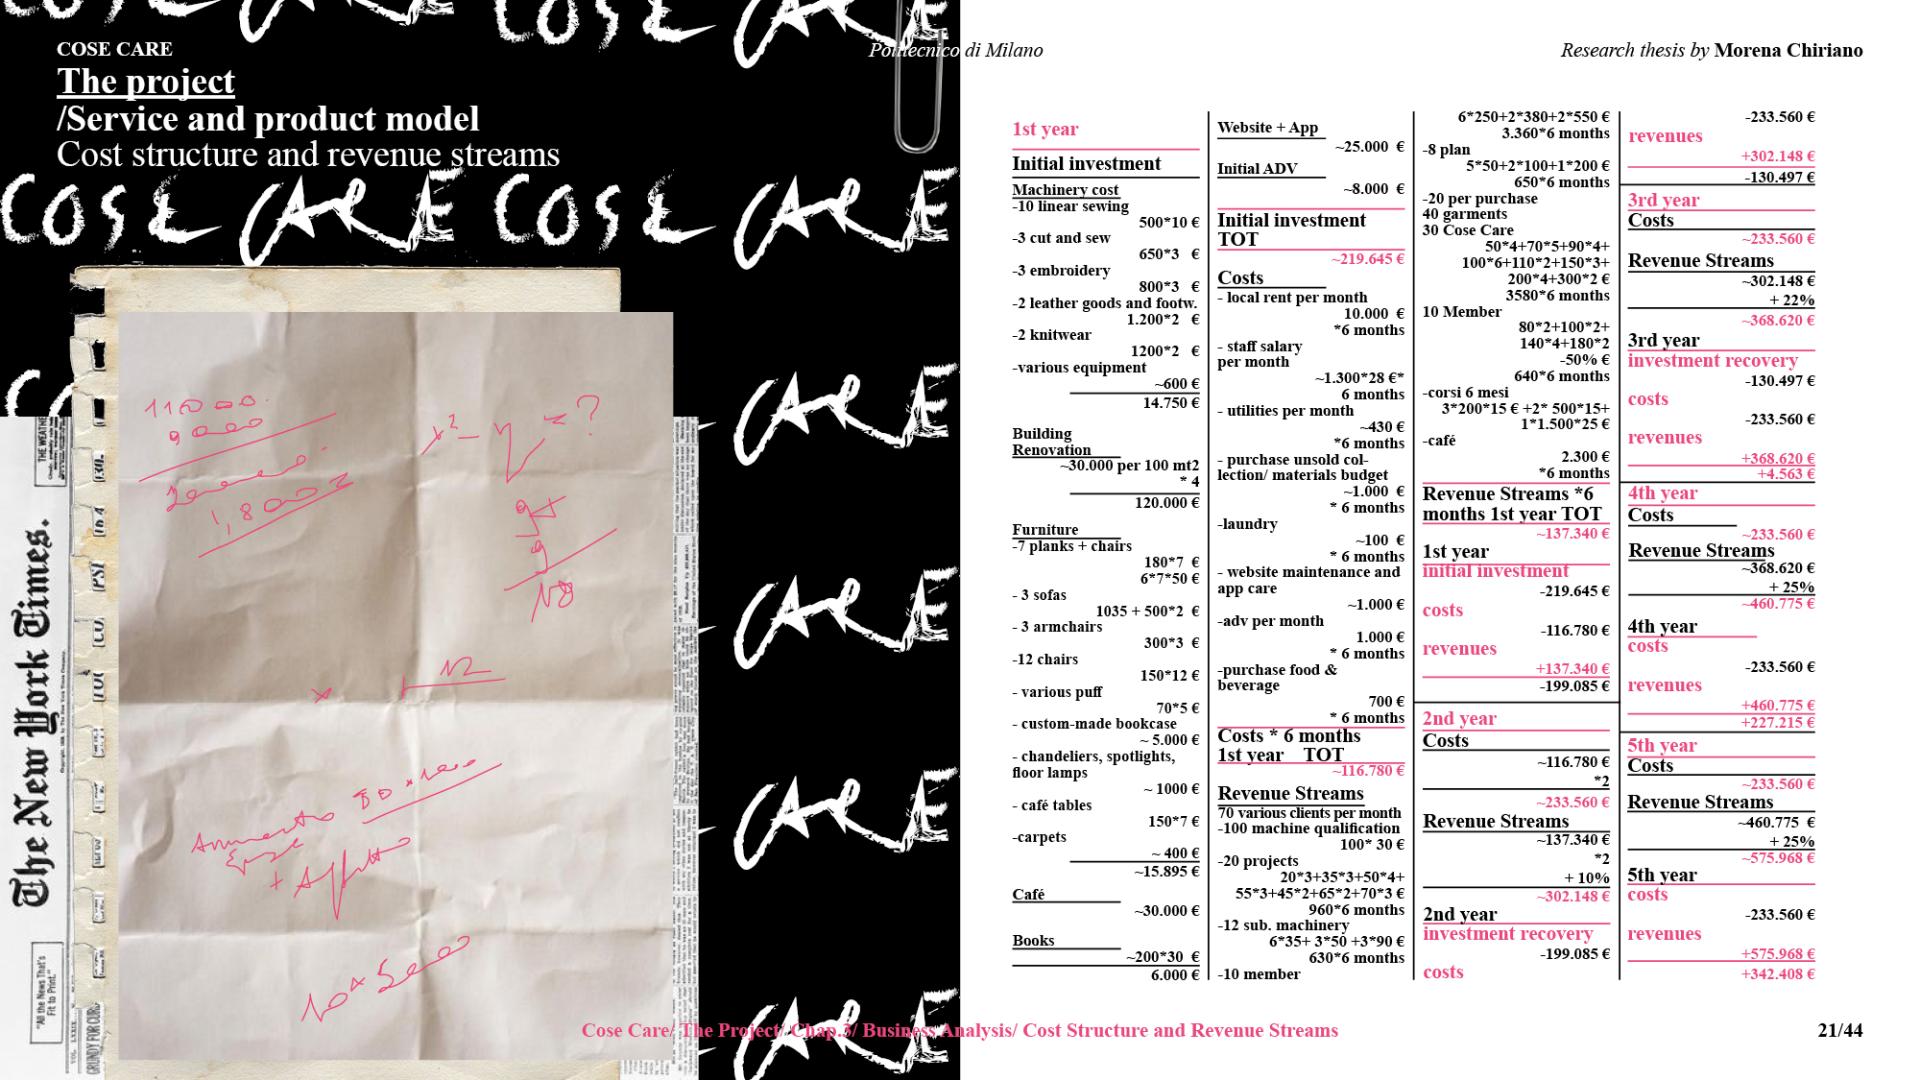 COSE CARE
The project
/Service and product model
Cost structure and revenue streams
Politecnico di Milano
Research thesis by Morena Chiriano
COSE CARE COSE CARE
The New York Times.
"All the News That's
Fit to Print."
THE WEATHER
1st year
Initial investment
Machinery cost
-10 linear sewing
500*10 €
-3 cut and sew
650*3 €
-3 embroidery
800*3 €
-2 leather goods and footw.
1.200*2 €
-2 knitwear
1200*2 €
-various equipment
~600 €
14.750 €
Building
Renovation
~30.000 per 100 mt2
* 4
120.000 €
Furniture
-7 planks + chairs
180*7 €
6*7*50 €
- 3 sofas
1035 + 500*2 €
- 3 armchairs
300*3 €
-12 chairs
150*12 €
- various puff
70*5 €
- custom-made bookcase
~ 5.000 €
- chandeliers, spotlights,
floor lamps
~ 1000 €
- café tables
150*7 €
-carpets
~ 400 €
~15.895 €
Café
~30.000 €
Books
~200*30 €
6.000 €
Website + App
~25.000 €
Initial ADV
~8.000 €
Initial investment
TOT
~219.645 €
Costs
- local rent per month
10.000 €
*6 months
- staff salary
per month
~1.300*28 €*
6 months
- utilities per month
~430 €
*6 months
- purchase unsold col-
lection/ materials budget
~1.000 €
* 6 months
-laundry
~100 €
* 6 months
- website maintenance and
app care
~1.000 €
-adv per month
1.000 €
* 6 months
-purchase food &
beverage
700 €
* 6 months
Costs * 6 months
1st year TOT
~116.780 €
Revenue Streams
70 various clients per month
-100 machine qualification
100* 30 €
-20 projects
20*3+35*3+50*4+
55*3+45*2+65*2+70*3 €
960*6 months
-12 sub. machinery
6*35+ 3*50 +3*90 €
630*6 months
-10 member
6*250+2*380+2*550 €
3.360*6 months
-8 plan
5*50+2*100+1*200 €
650*6 months
-20 per purchase
40 garments
30 Cose Care
50*4+70*5+90*4+
100*6+110*2+150*3+
200*4+300*2 €
3580*6 months
10 Member
80*2+100*2+
140*4+180*2
-50% €
640*6 months
-corsi 6 mesi
3*200*15 € +2* 500*15+
1*1.500*25 €
-café
2.300 €
*6 months
Revenue Streams *6
months 1st year TOT
~137.340 €
1st year
initial investment
-219.645 €
costs
-116.780 €
revenues
+137.340 €
-199.085 €
2nd year
Costs
~116.780 €
*2
~233.560 €
Revenue Streams
~137.340 €
*2
+ 10%
~302.148 €
2nd year
investment recovery
-199.085 €
costs
-233.560 €
revenues
+302.148 €
-130.497 €
3rd year
Costs
~233.560 €
Revenue Streams
~302.148 €
+ 22%
~368.620 €
3rd year
investment recovery
-130.497 €
costs
-233.560 €
revenues
+368.620 €
+4.563 €
4th year
Costs
~233.560 €
Revenue Streams
~368.620 €
+ 25%
~460.775 €
4th year
costs
-233.560 €
revenues
+460.775 €
+227.215 €
5th year
Costs
~233.560 €
Revenue Streams
~460.775 €
+ 25%
~575.968 €
5th year
costs
-233.560 €
revenues
+575.968 €
+342.408 €
Cose Care/ The Project/ Chap.3/ Business Analysis/ Cost Structure and Revenue Streams
21/44